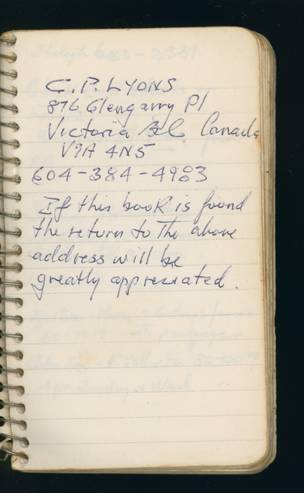 C.P. LYONS
876 Glengarry Pl
Victoria BC Canada
V9A 4N5
604-384-4983
If this book is found
the return to the above
address will be
greatly appreciated.